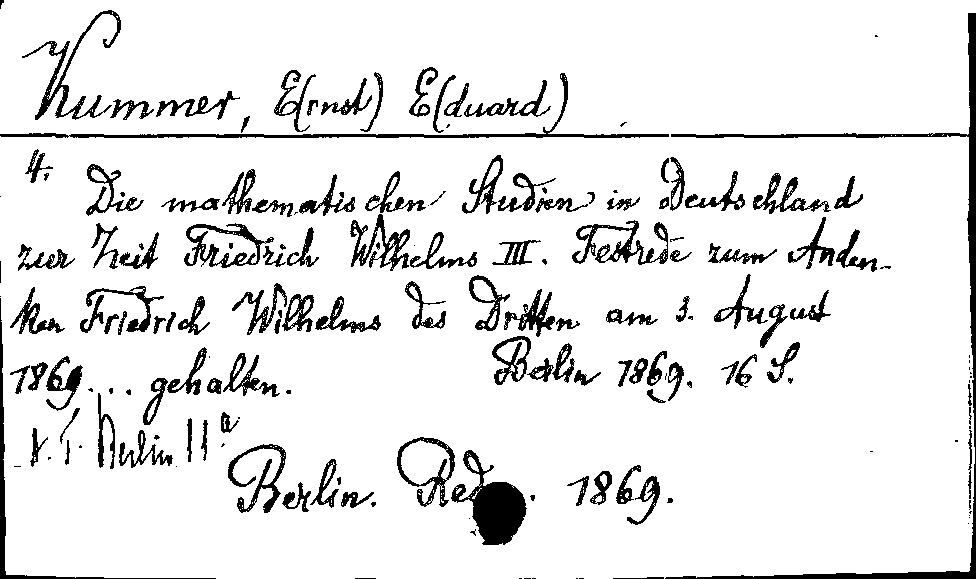 Kummer, E(rnst) E(duard)
4.
Die mathematischen Studien in Deutschland
zur Zeit Friedrich Wilhelms III. Festrede zum Anden-
ken Friedrich Wilhelms des Dritten am 3. August
1869... gehalten. Berlin 1869. 16 S.
Berlin 11a
Berlin. Red. 1869.